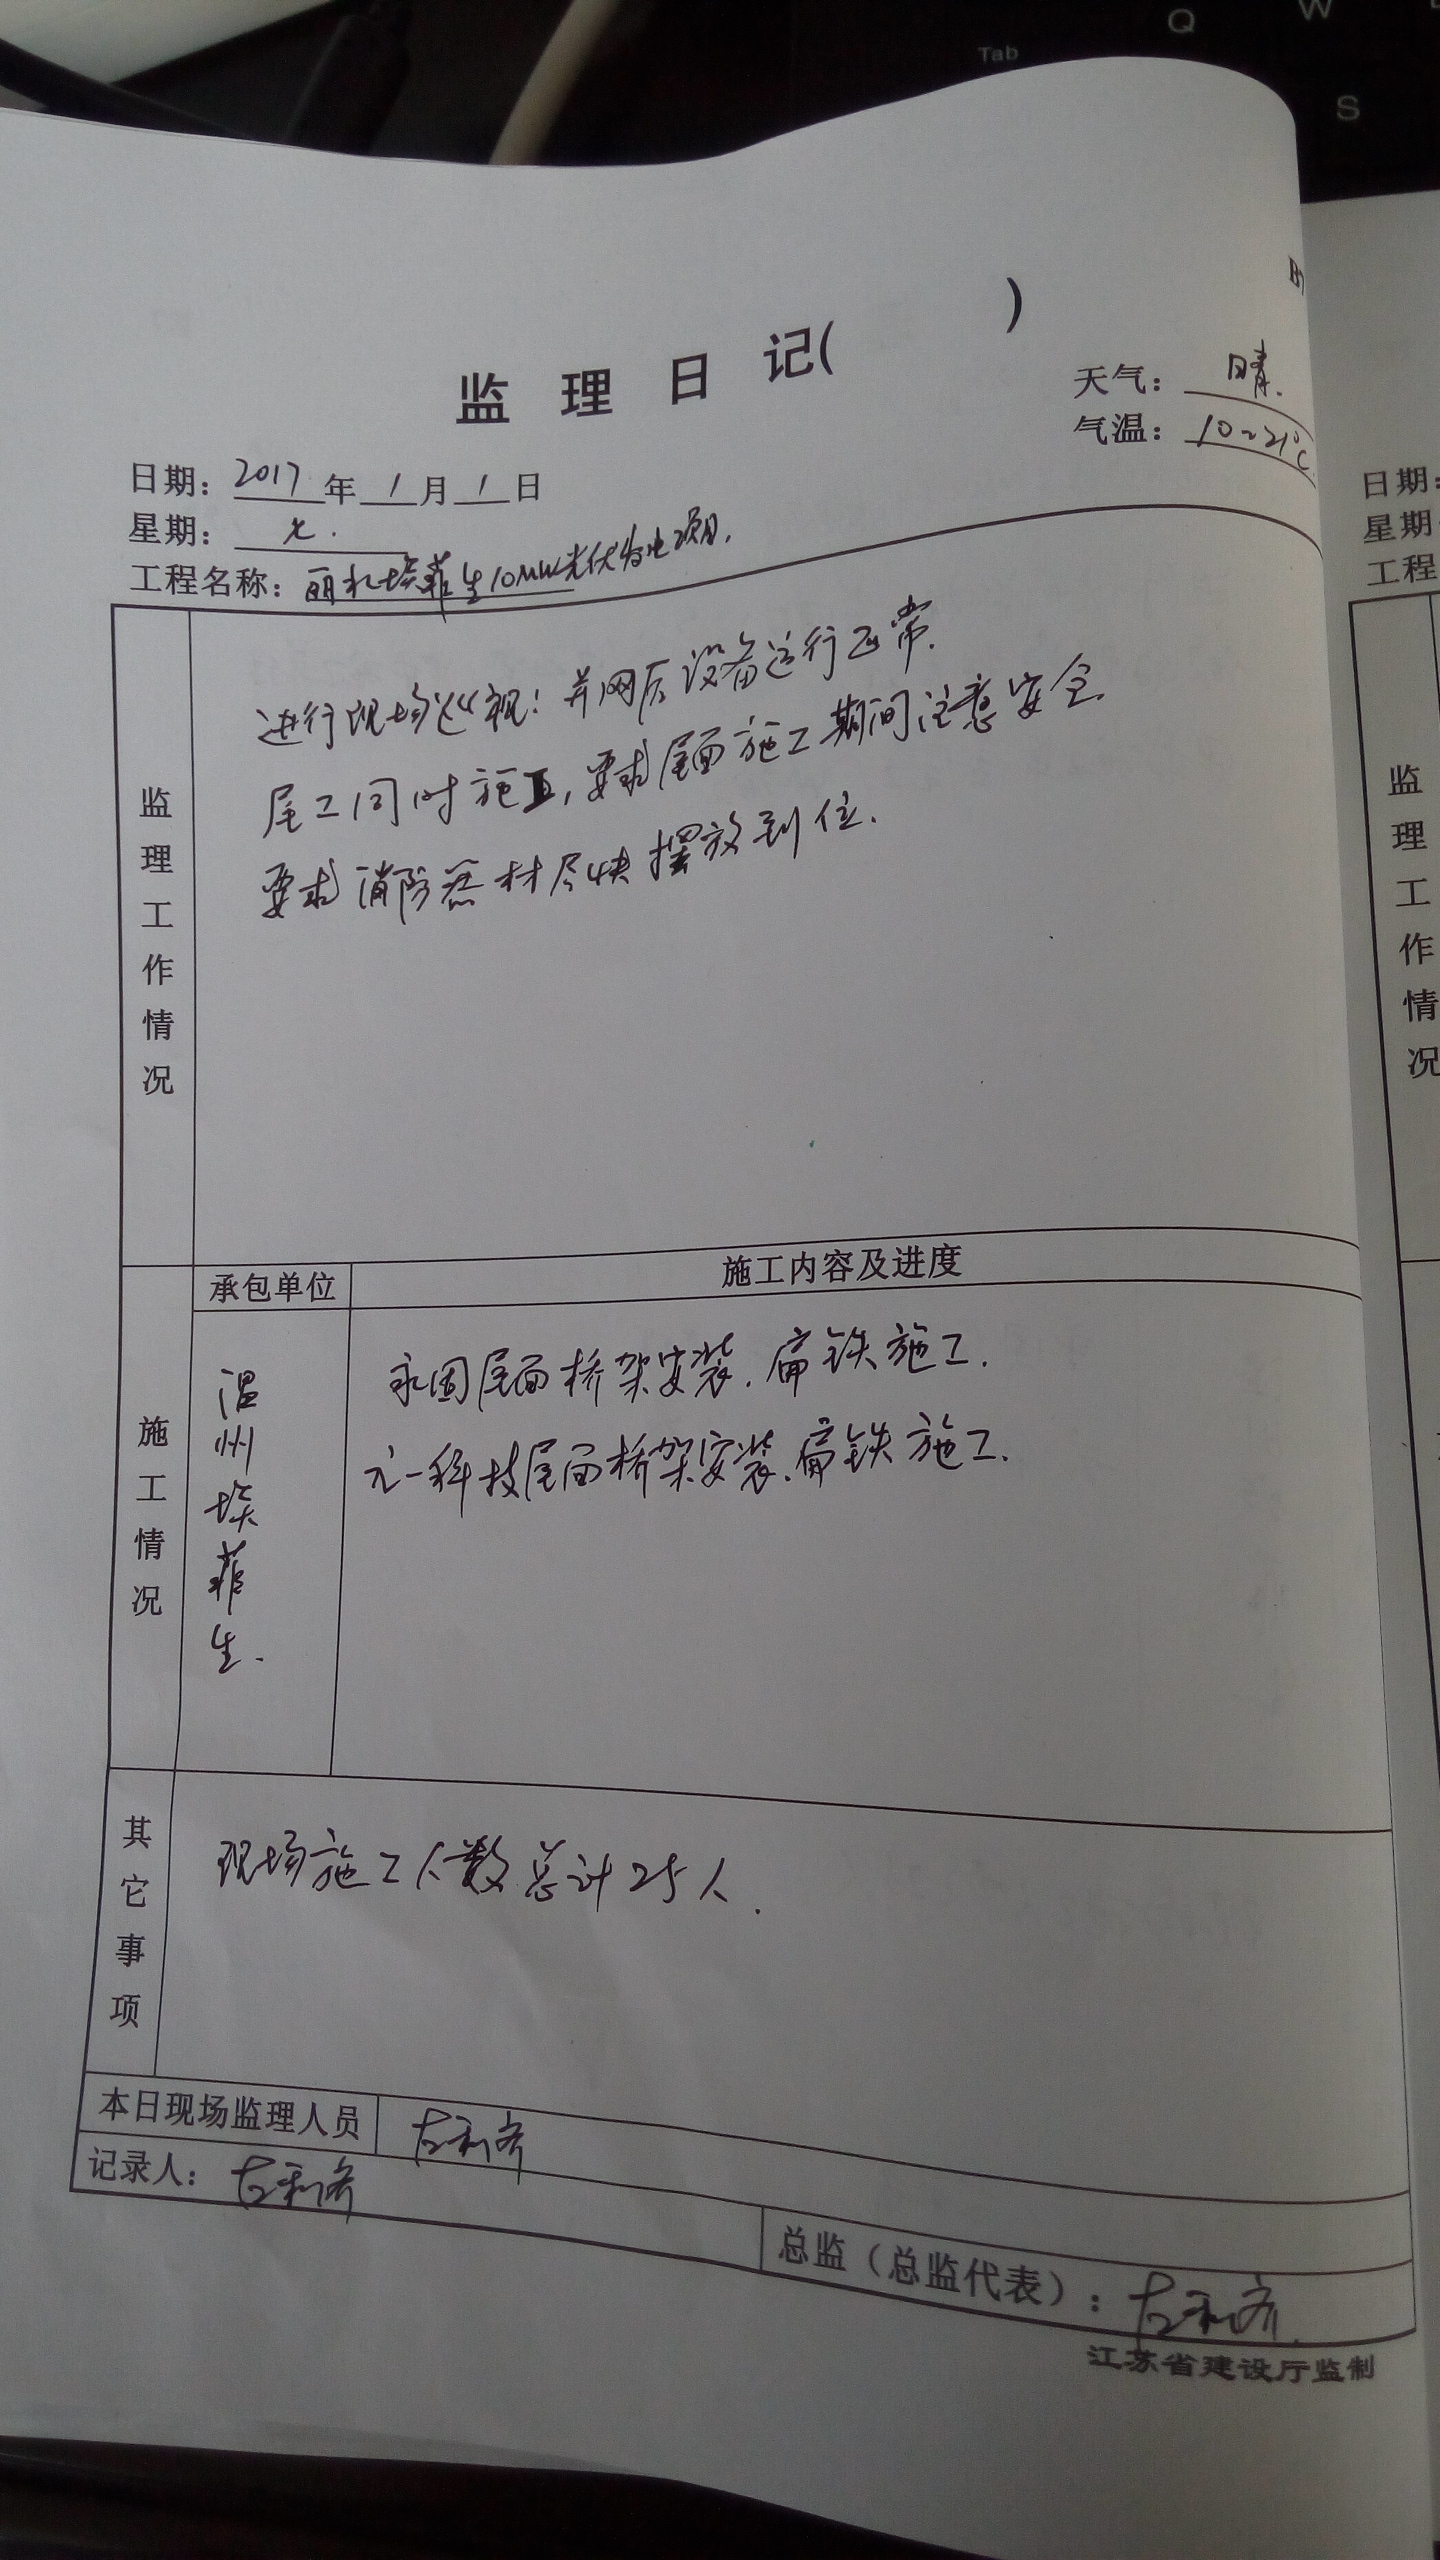 Q W
Tab
S
监 理 日 记( )
天气: 晴.
气温: 10~21℃.
日期: 2017年1月1日
星期: 七.
工程名称: 丽水埃菲生10MW光伏发电项目.
监理工作情况
进行现场巡视: 并网后设备运行正常.
尾工同时施工, 要求屋面施工期间注意安全.
要求消防器材尽快摆放到位.
施工情况
承包单位
施工内容及进度
温州埃菲生.
永固屋面桥架安装. 扁铁施工.
元一科技屋面桥架安装. 扁铁施工.
其它事项
现场施工人数总计25人.
本日现场监理人员
记录人:
总监(总监代表):
江苏省建设厅监制
日期:
星期
工程
监理工作情况